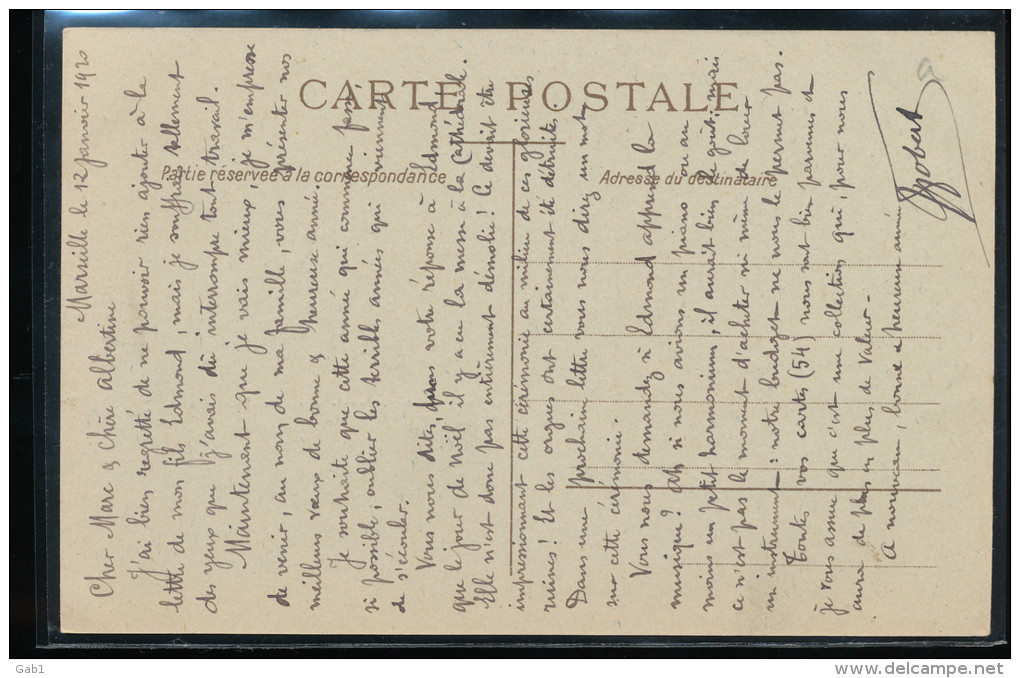 CARTE POSTALE
Partie réservée à la correspondance
Adresse du destinataire
Marseille le 12 Janvier 1920
Cher Marc & Chère Albertine
J'ai bien regretté de ne pouvoir rien ajouter à la
lettre de mon fils Edmond, mais je souffrais tellement
des yeux que j'avais dû interrompre tout travail.
Maintenant que je vais mieux, je m'empresse
de venir, au nom de ma famille, vous présenter nos
meilleurs vœux de bonne & heureuse année.
Je souhaite que cette année qui commence fasse
si possible, oublier les terribles années qui viennent
de s'écouler.
Vous nous dites, dans votre réponse à Edmond
que le jour de Noël il y a eu la messe à la Cathédrale.
Elle n'est donc pas entièrement démolie! Ce devait être
impressionnant cette cérémonie au milieu de ces glorieuses
ruines! Et les orgues ont certainement été détruites.
Dans une prochaine lettre vous nous direz un mot
sur cette cérémonie.
Vous nous demandez si Edmond apprend la
musique? Ah si nous avions un piano ou au
moins un petit harmonium, il aurait bien le goût, mais
ce n'est pas le moment d'acheter ni même de louer
un instrument: notre budget ne nous le permet pas.
Toutes vos cartes (54) nous sont bien parvenues et
je vous assure que c'est une collection qui, pour nous
aura de plus en plus de Valeur-
A nouveau, bonne & heureuse année
Gab1
www.delcampe.net